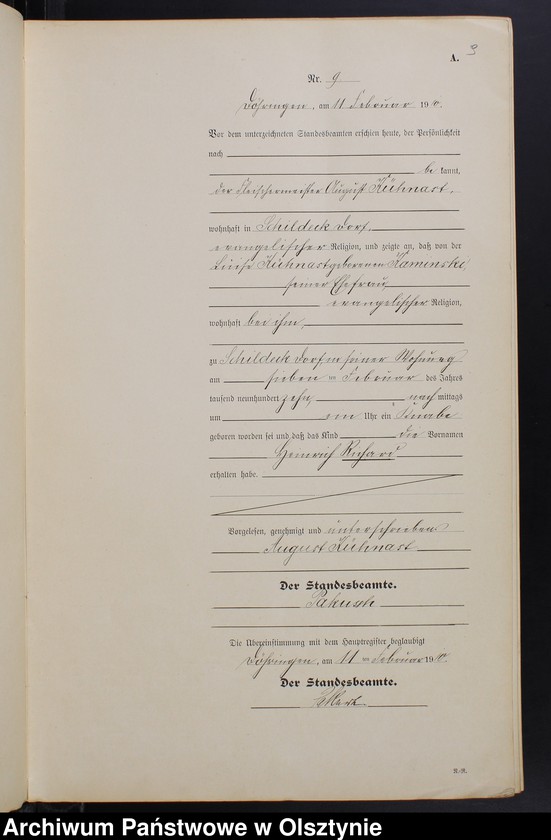 9
A.
Nr. 9
Döhringen, am 11 Februar 1910.
Vor dem unterzeichneten Standesbeamten erschien heute, der Persönlichkeit
nach
be kannt,
der Fleischermeister August Kühnast,
wohnhaft in Schildeck Dorf,
evangelischer Religion, und zeigte an, daß von der
Luise Kühnast geborenen Kaminski,
seiner Ehefrau,
evangelischer Religion,
wohnhaft bei ihm,
zu Schildeck Dorf in seiner Wohnung
am sieben ten Februar des Jahres
tausend neunhundert zehn nach mittags
um ein Uhr ein Knabe
geboren worden sei und daß das Kind die Vornamen
Heinrich Richard
erhalten habe.
Vorgelesen, genehmigt und unterschrieben
August Kühnast
Der Standesbeamte.
Die Übereinstimmung mit dem Hauptregister beglaubigt
Döhringen, am 11 ten Februar 1910.
Der Standesbeamte.
R.-R.
Archiwum Państwowe w Olsztynie